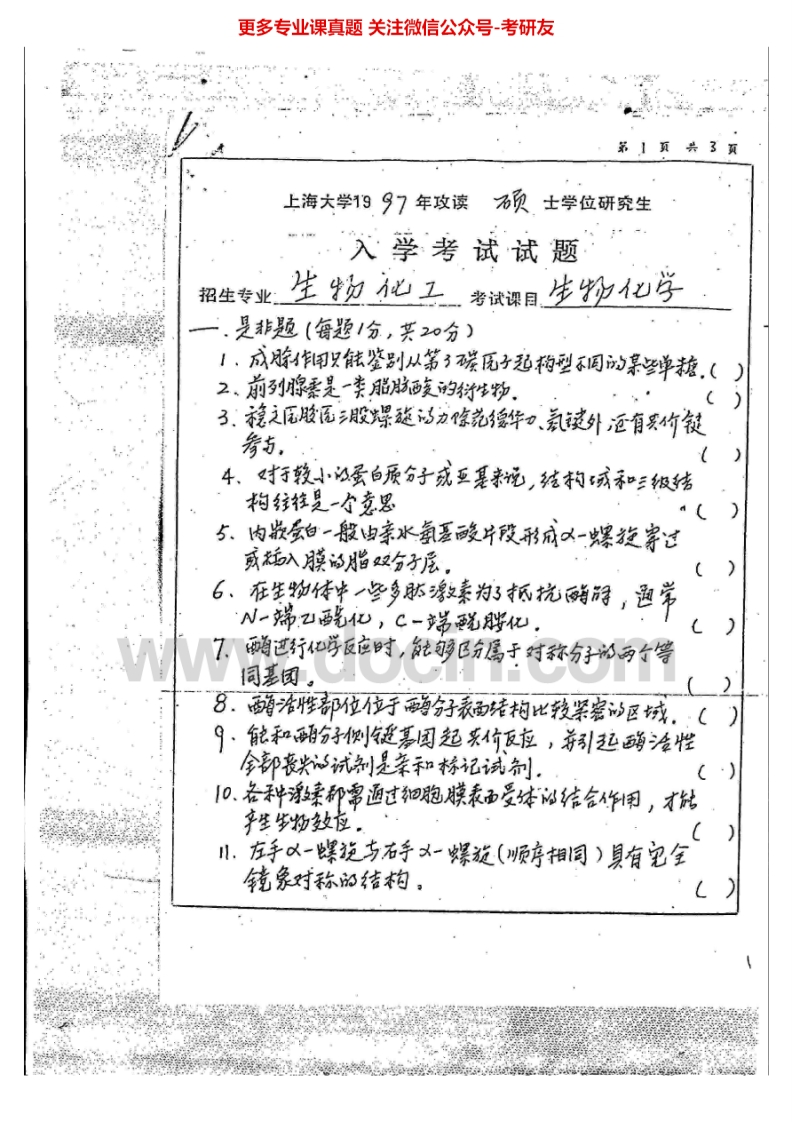 更多专业课真题 关注微信公众号-考研友
第 1 页 共 3 页
上海大学1997年攻读 硕 士学位研究生
入学考试试题
招生专业 生物化工 考试课目 生物化学
一、是非题(每题1分,共20分)
1、成脎作用只能鉴别从第3碳原子起构型不同的某些单糖.( )
2、前列腺素是一类脂肪酸的衍生物. ( )
3、稳定胶原三股螺旋的力除范德华力、氢键外,还有共价键
参与。 ( )
4、对于较小的蛋白质分子或亚基来说,结构域和三级结
构往往是一个意思 ( )
5、内嵌蛋白一般由亲水氨基酸片段形成α-螺旋穿过
或插入膜的脂双分子层。 ( )
6、在生物体中一些多肽激素为了抵抗酶解,通常
N-端乙酰化,C-端酰胺化. ( )
7、酶进行化学反应时,能够区分属于对称分子的两个等
同基团。 ( )
8、酶活性部位位于酶分子表面结构比较紧密的区域. ( )
9、能和酶分子侧链基团起共价反应,并引起酶活性
全部丧失的试剂是亲和标记试剂. ( )
10、各种激素都需通过细胞膜表面受体的结合作用,才能
产生生物效应。 ( )
11、左手α-螺旋与右手α-螺旋(顺序相同)具有完全
镜象对称的结构。 ( )
www.docin.com
1